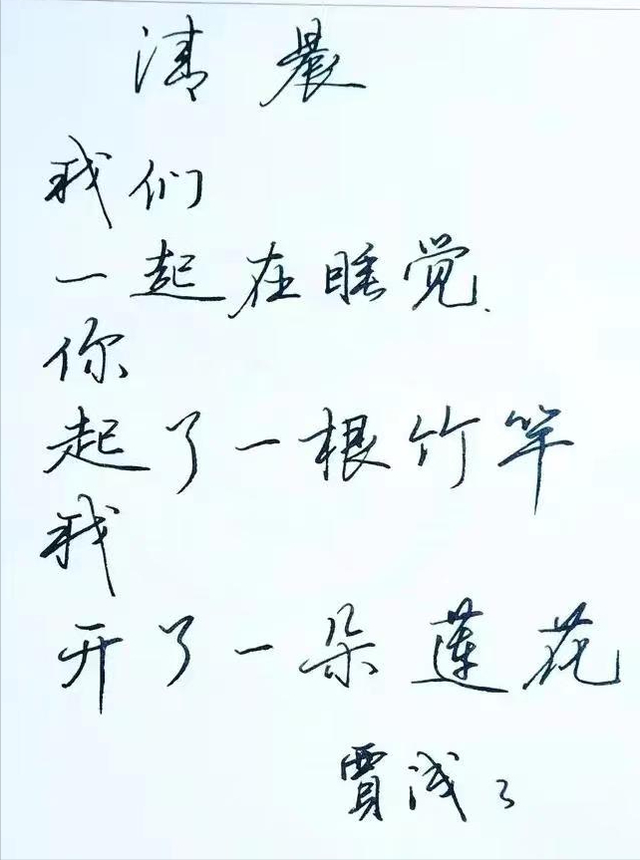 清晨
我们
一起在睡觉.
你
起了一根竹竿
我
开了一朵莲花
贾浅々